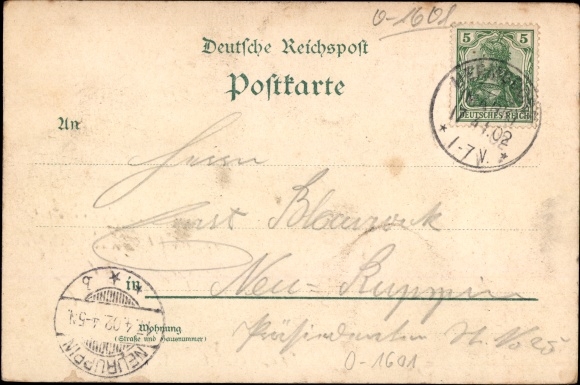 0-1601
Deutsche Reichspost
Postkarte
5 5
DEUTSCHES REICH
4.02
* 1-7 V. *
An
Herrn
Ernst
in Neu-Ruppin
NEURUPPIN
4.02 4-5 N.
* * b
Wohnung
(Straße und Hausnummer)
Präsidenten Str.
0-1601